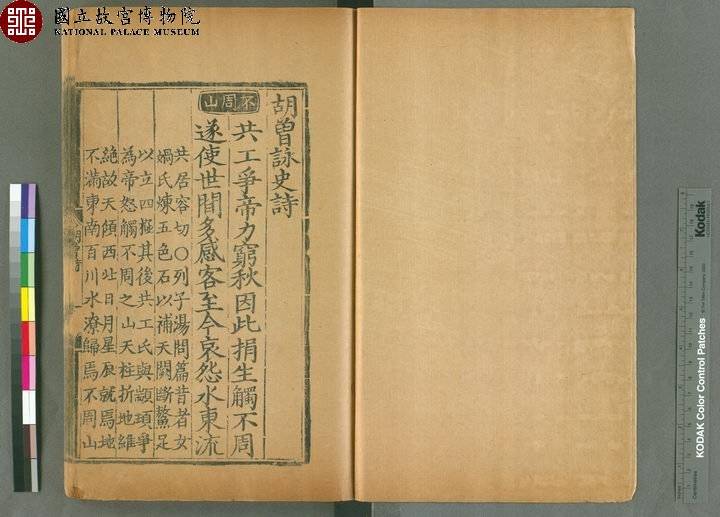 國立故宮博物院
NATIONAL PALACE MUSEUM
胡曾詠史詩
不周山
共工爭帝力窮秋因此捐生觸不周
遂使世間多感客至今哀怨水東流
共居容切〇列子湯問篇昔者女
媧氏煉五色石以補天闕斷鰲足
以立四極其後共工氏與顓頊爭
為帝怒觸不周之山天柱折地維
絶故天傾西北日月星辰就焉地
不滿東南百川水潦歸焉不周山
Kodak
KODAK Color Control Patches